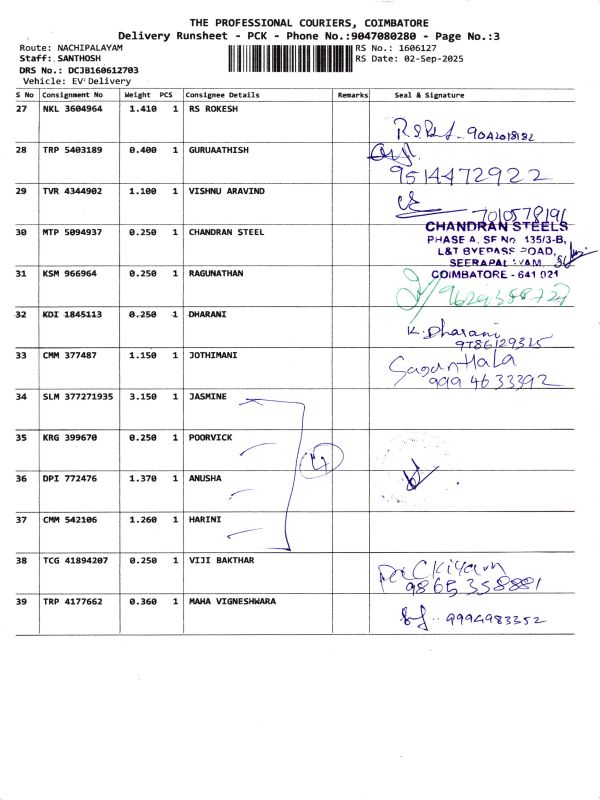 THE PROFESSIONAL COURIERS, COIMBATORE
Delivery Runsheet - PCK - Phone No.:9047080280 - Page No.:3
Route: NACHIPALAYAM RS No.: 1606127
Staff: SANTHOSH RS Date: 02-Sep-2025
DRS No.: DCJB160612703
Vehicle: EV Delivery
S No Consignment No Weight PCS Consignee Details Remarks Seal & Signature
27 NKL 3604964 1.410 1 RS ROKESH
9042018182
28 TRP 5403189 0.400 1 GURUAATHISH
9514472922
29 TVR 4344902 1.100 1 VISHNU ARAVIND
7010578191
30 MTP 5094937 0.250 1 CHANDRAN STEEL
CHANDRAN STEELS
PHASE A, SF No 135/3-B,
L&T BYEPASS ROAD,
SEERAPALAYAM,
COIMBATORE - 641 021
31 KSM 966964 0.250 1 RAGUNATHAN
32 KDI 1845113 0.250 1 DHARANI
K. Dharani
9786129315
33 CMM 377487 1.150 1 JOTHIMANI
9994633392
34 SLM 377271935 3.150 1 JASMINE
35 KRG 399670 0.250 1 POORVICK
4
36 DPI 772476 1.370 1 ANUSHA
37 CMM 542106 1.260 1 HARINI
38 TCG 41894207 0.250 1 VIJI BAKTHAR
9865358881
39 TRP 4177662 0.360 1 MAHA VIGNESHWARA
9994983352